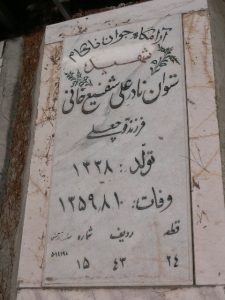 آرامگاه جوان ناکام
شهید
ستوان نادر علی شفیع خانی
فرزند قوچعلی
تولد: ۱۳۲۸
وفات: ۱۳۵۹٫۸٫۱۰
قطعه ردیف شماره
۲۴ ۴۳ ۱۵